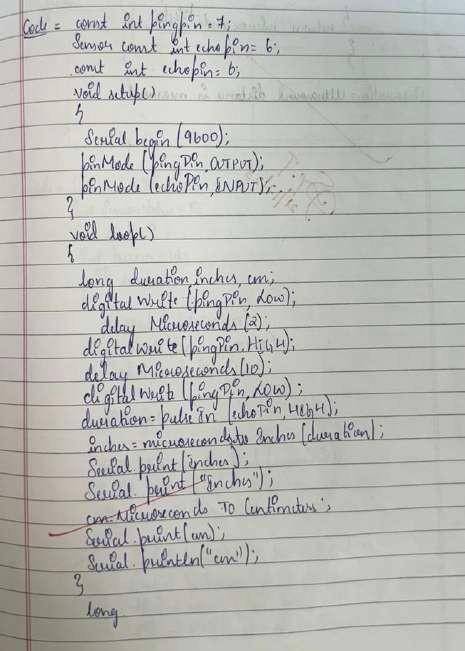 Code = const int pingpin = 7;
Sensor const int echopin = 6;
const int echopin = 6;
void setup()
{
Serial begin (9600);
pinMode (pingPin, OUTPUT);
pinMode (echoPin, INPUT);
}
void loop()
{
long duration, inches, cm;
digitalWrite (pingPin, LOW);
delay Microseconds (2);
digitalwrite (pingPin, HIGH);
delay Microseconds (10);
digitalWrite (pingPin, LOW);
duration = pulse In (echoPin, HIGH);
inches = microsecondsto Inches (duration);
Serial. print (inches);
Serial. print ("inches");
cm = Microseconds To Centimeters;
Serial. print (cm);
Serial. println ("cm");
}
long